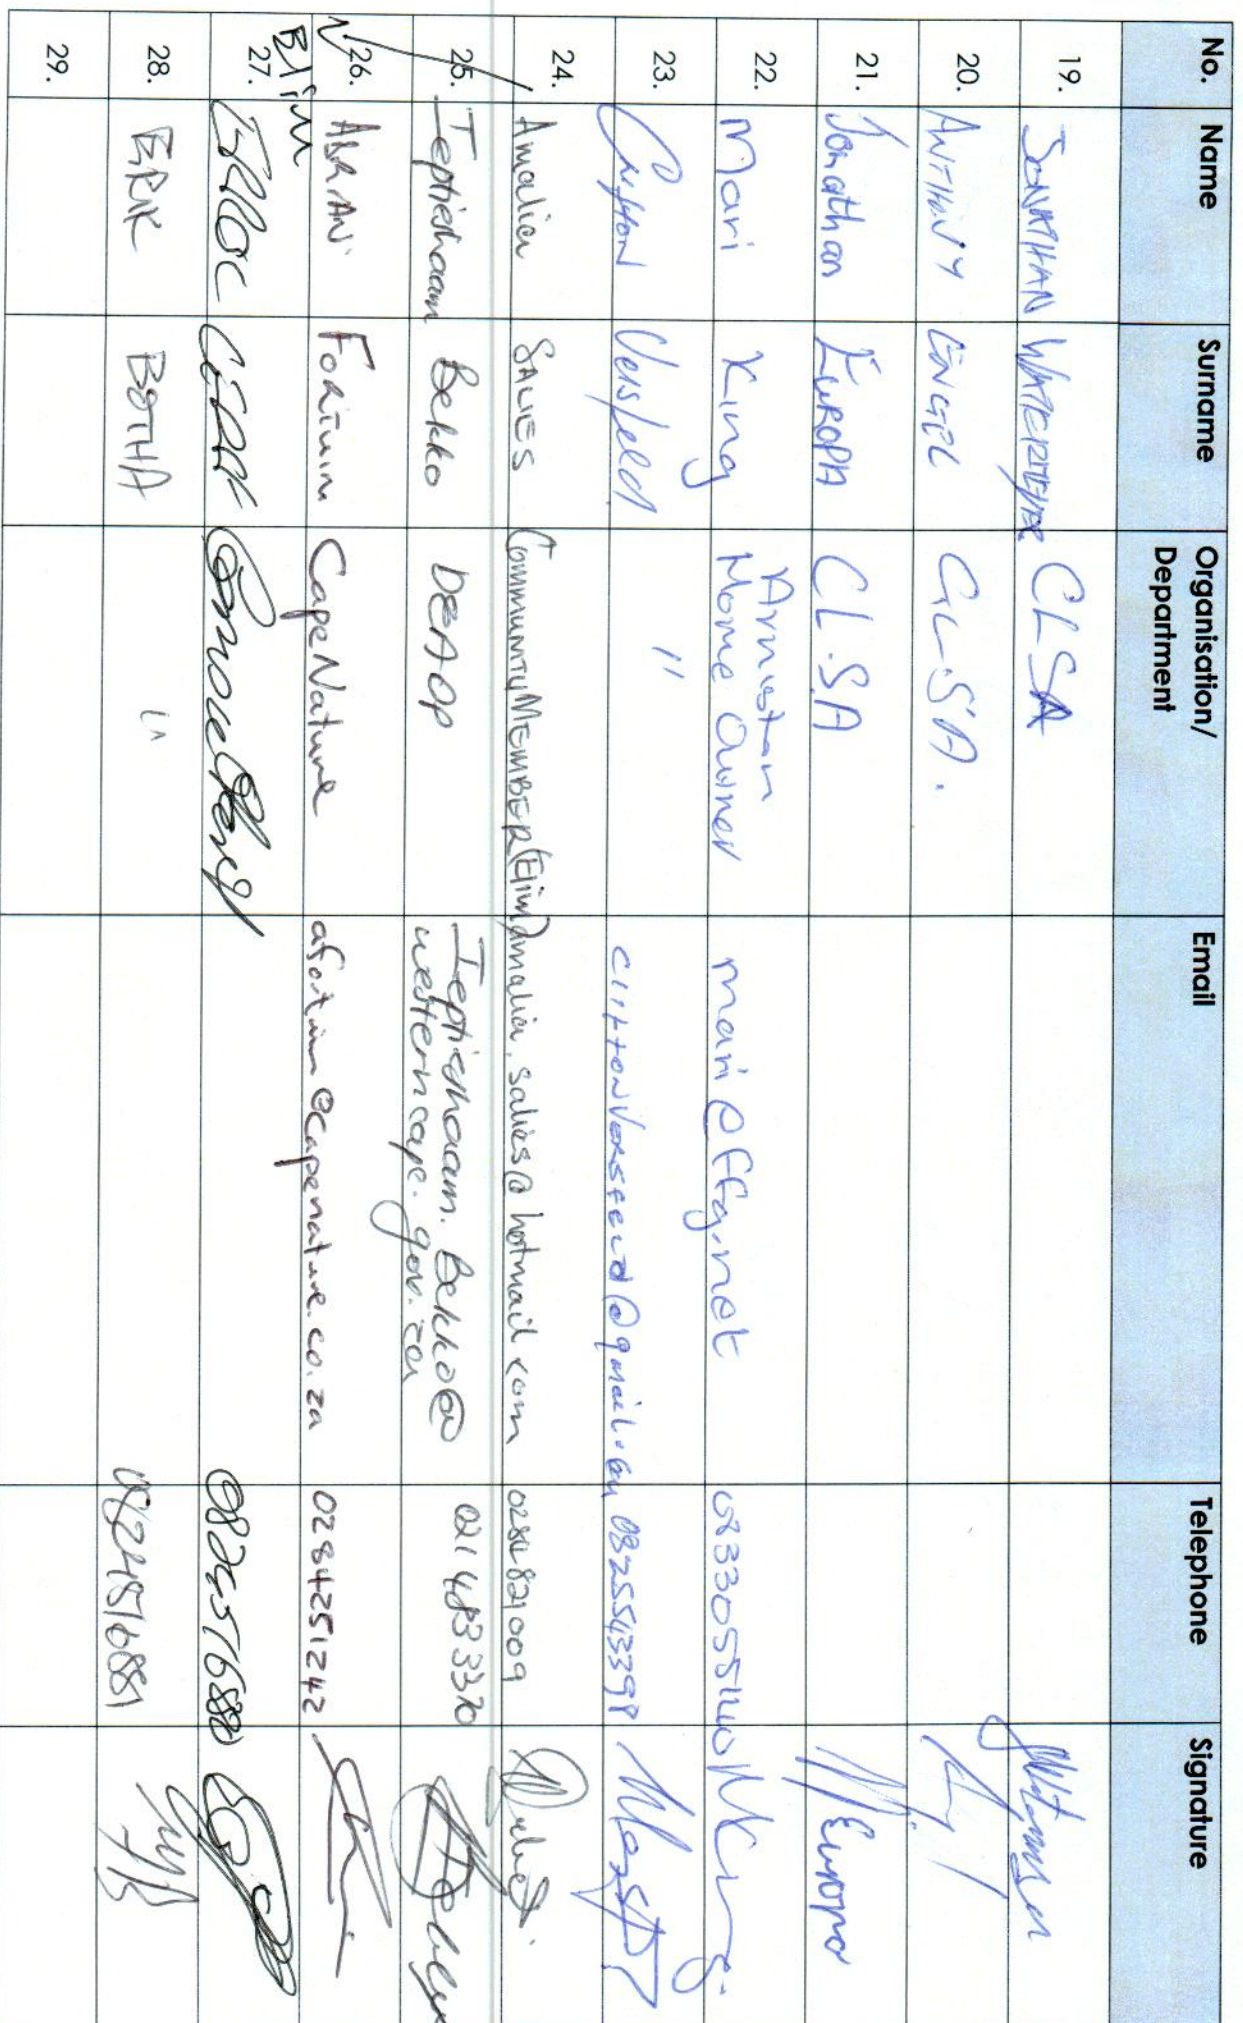 No. Name Surname Organisation/ Department Email Telephone Signature
19. JONATHAN WATERMEYER CLSA
20. ANTHONY ENGEL C.L.S.A.
21. Jonathan EUROPA C L.S.A Europa
22. Mari King Arniston Home Owner mari@ffg.net 0833055140 MKing.
23. Clifton Versfeld " cliftonversfeld@gmail.com 0825543398
24. Amalia SALIES COMMUNITY MEMBER (Elim) amalia.salies@hotmail.com 0284821009
25. Ieptieshaam Bekko DEADP Ieptieshaam.Bekko@ westerncape.gov.za 021 483 3370
26. ABRAN Fortuin CapeNature afortuin@capenature.co.za 0284251242
27. 0824516880
28. ERIK BOTHA " 0824516881
29.